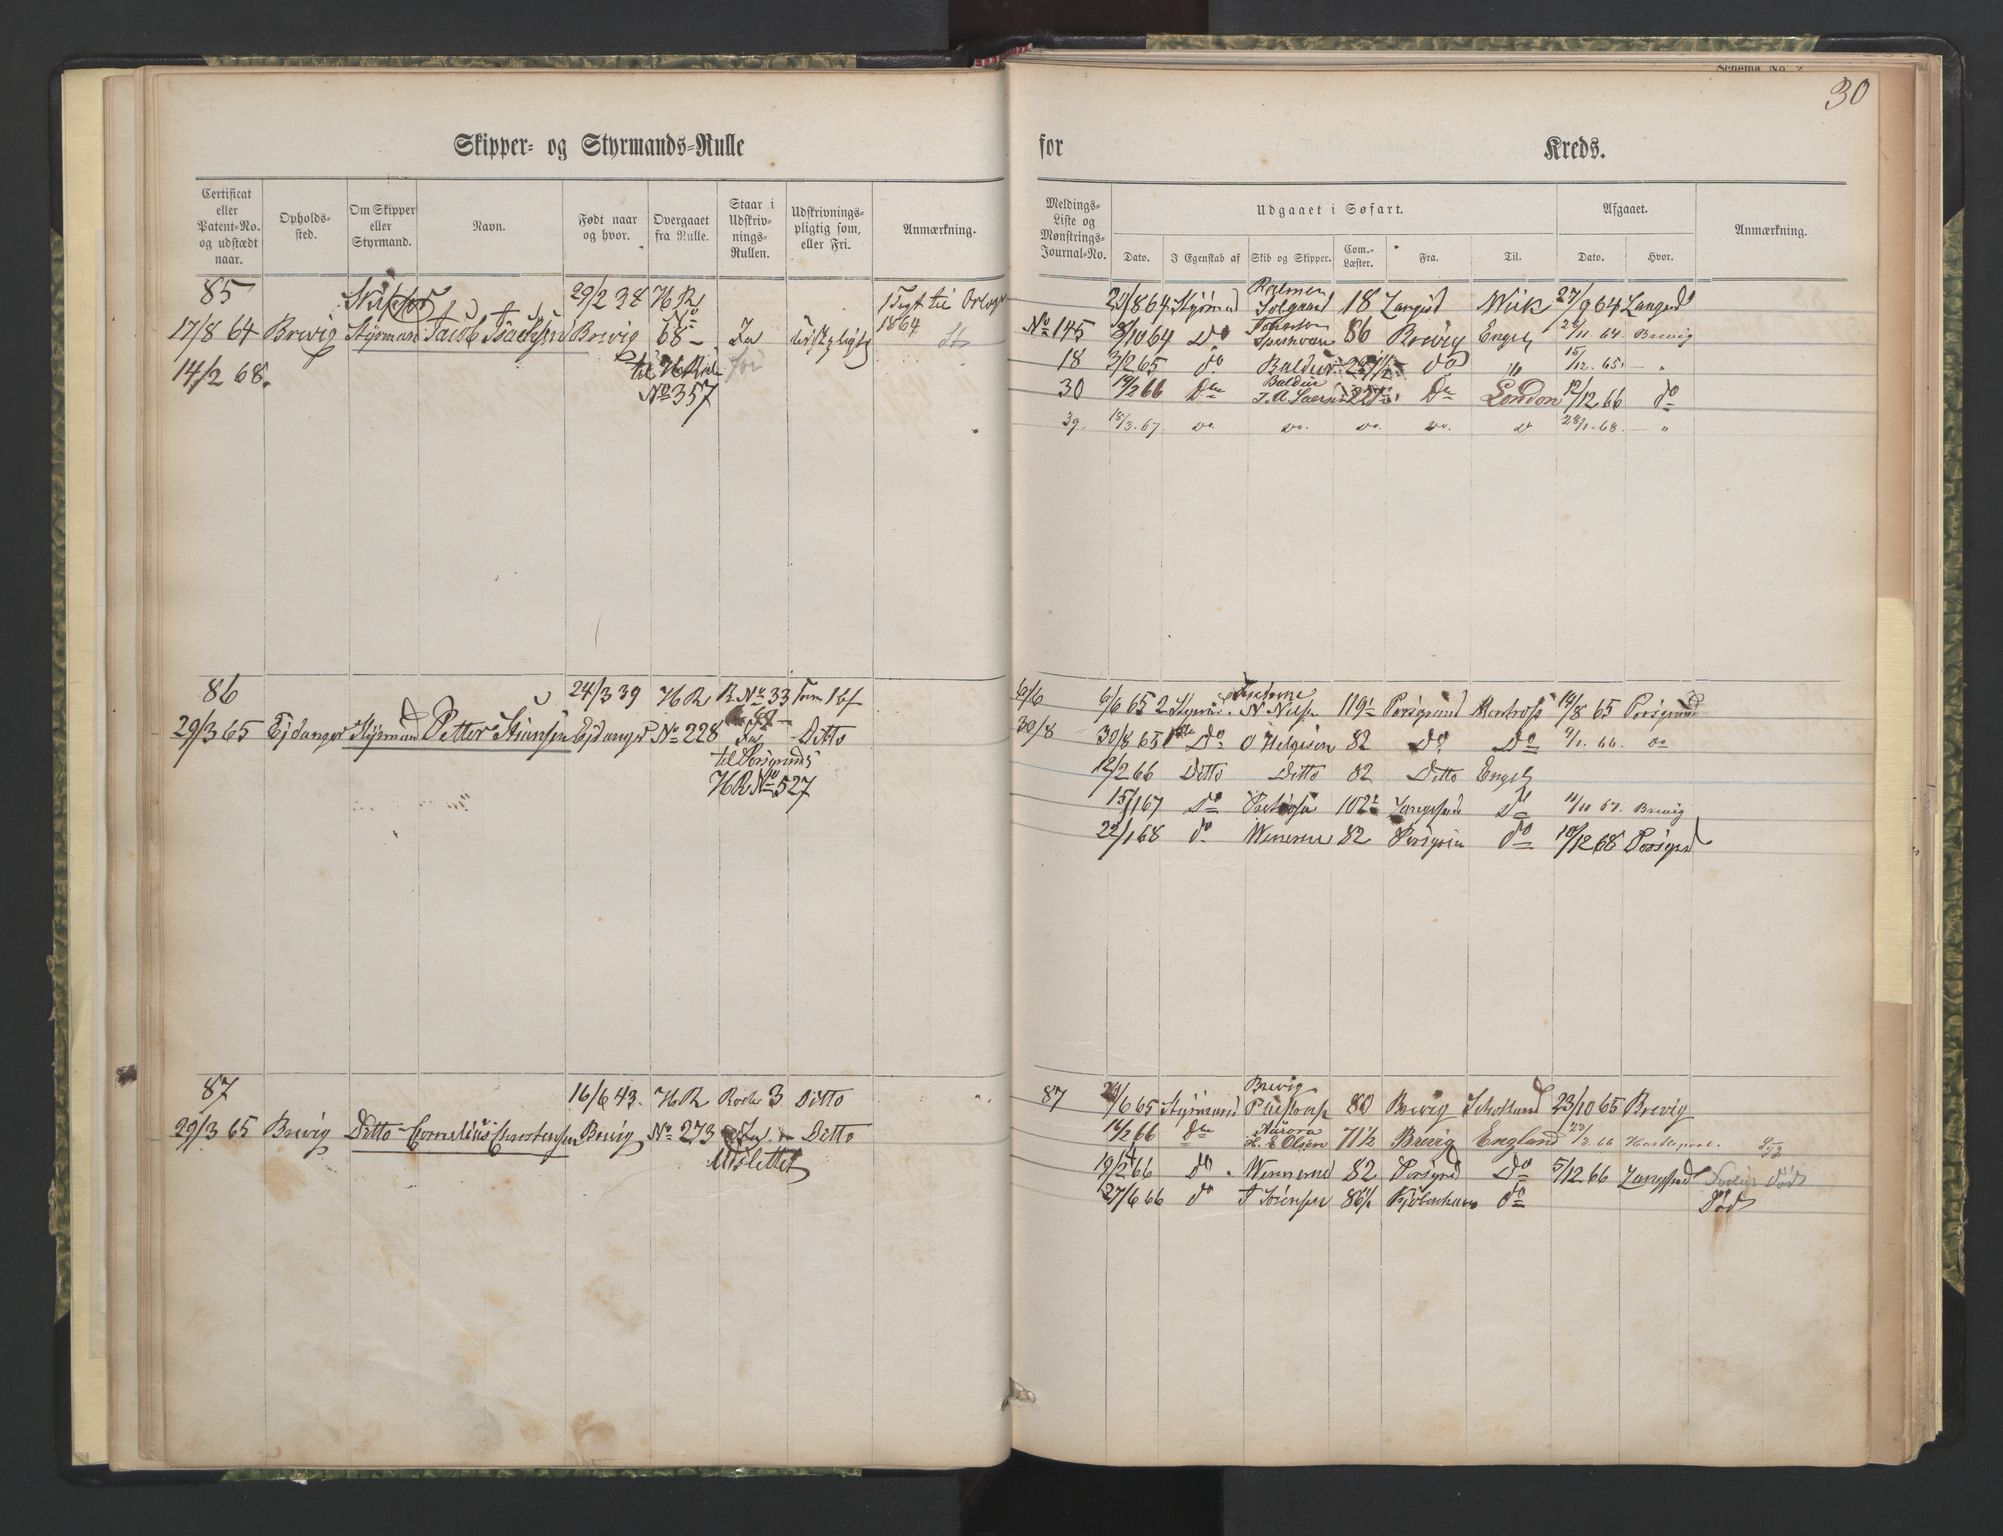 Schema No. 2
30
Skipper- og Styrmands-Rulle
for Kreds.
Certificat eller Patent-No. og udstædt naar.
Opholds-sted.
Om Skipper eller Styrmand.
Navn.
Født naar og hvor.
Overgaaet fra Rulle.
Staar i Udskriv-nings-Rullen.
Udskrivnings-pligtig som, eller Fri.
Anmærkning.
Meldings-Liste og Mønstrings-Journal-No.
Udgaaet i Søfart.
Dato.
I Egenskab af
Skib og Skipper.
Com.-Læster.
Fra.
Til.
Afgaaet.
Dato.
Hvor.
Anmærkning.
85 Skipper 29/2 38 HR 1 Togt til Orlog
17/8 64 Brevig Styrman Jacob Isachsen Brevig No 68 Ja 1864
14/2 68. til H Rul
No 357
29/8 64 Styrmand Palmen Solgaard 18 Langsd Wick 27/9 64 Langesd
No 145 3/10 64 Do 86 Brevig Engel 24/11 64 Brevig
18 3/2 65 do Baldur do " 15/12 65 "
30 19/2 66 Do Baldur Do London 12/12 66 do
39 15/3 67 do do do do do 28/1 68 "
86 24/3 39 HR R No 33
29/3 65 Ejdanger Styrmand Petter Ejdanger No 228 Ja Ditto
til Porsgrunds
HR No 527
6/6 6/6 65 2 Styrmd N Nilsen 119 1/2 Porsgrund Montrose 14/8 65 Porsgrund
30/8 30/8 65 1ste Do O Helgesen 82 Do Do 9/1 66 Do
12/2 66 Ditto Ditto 82 Ditto Engel
15/1 67 Do 102 1/2 Langesund Do 11/11 67 Brevig
22/1 68 do Wennerne 82 Porsgrun do 10/12 68 Porsgrd
87 16/6 43. HR Rode 3 Ditto
29/3 65 Brevig Ditto Cornelius Christensen Brevig No 273 Ja Ditto
Udslettet
87 /6 65 Styrmand Brevig 80 Brevig Schotland 23/10 65 Brevig
16/2 66 Do Aurora H. E Olsen 71 1/2 Brevig England 23/3 66 Hartlepool
19/2 66 do Wennerne 82 Porsgrd Do 5/12 66 Langesund død
27/6 66 do Sørensen 86 1/2 Kjøbenhavn do Død